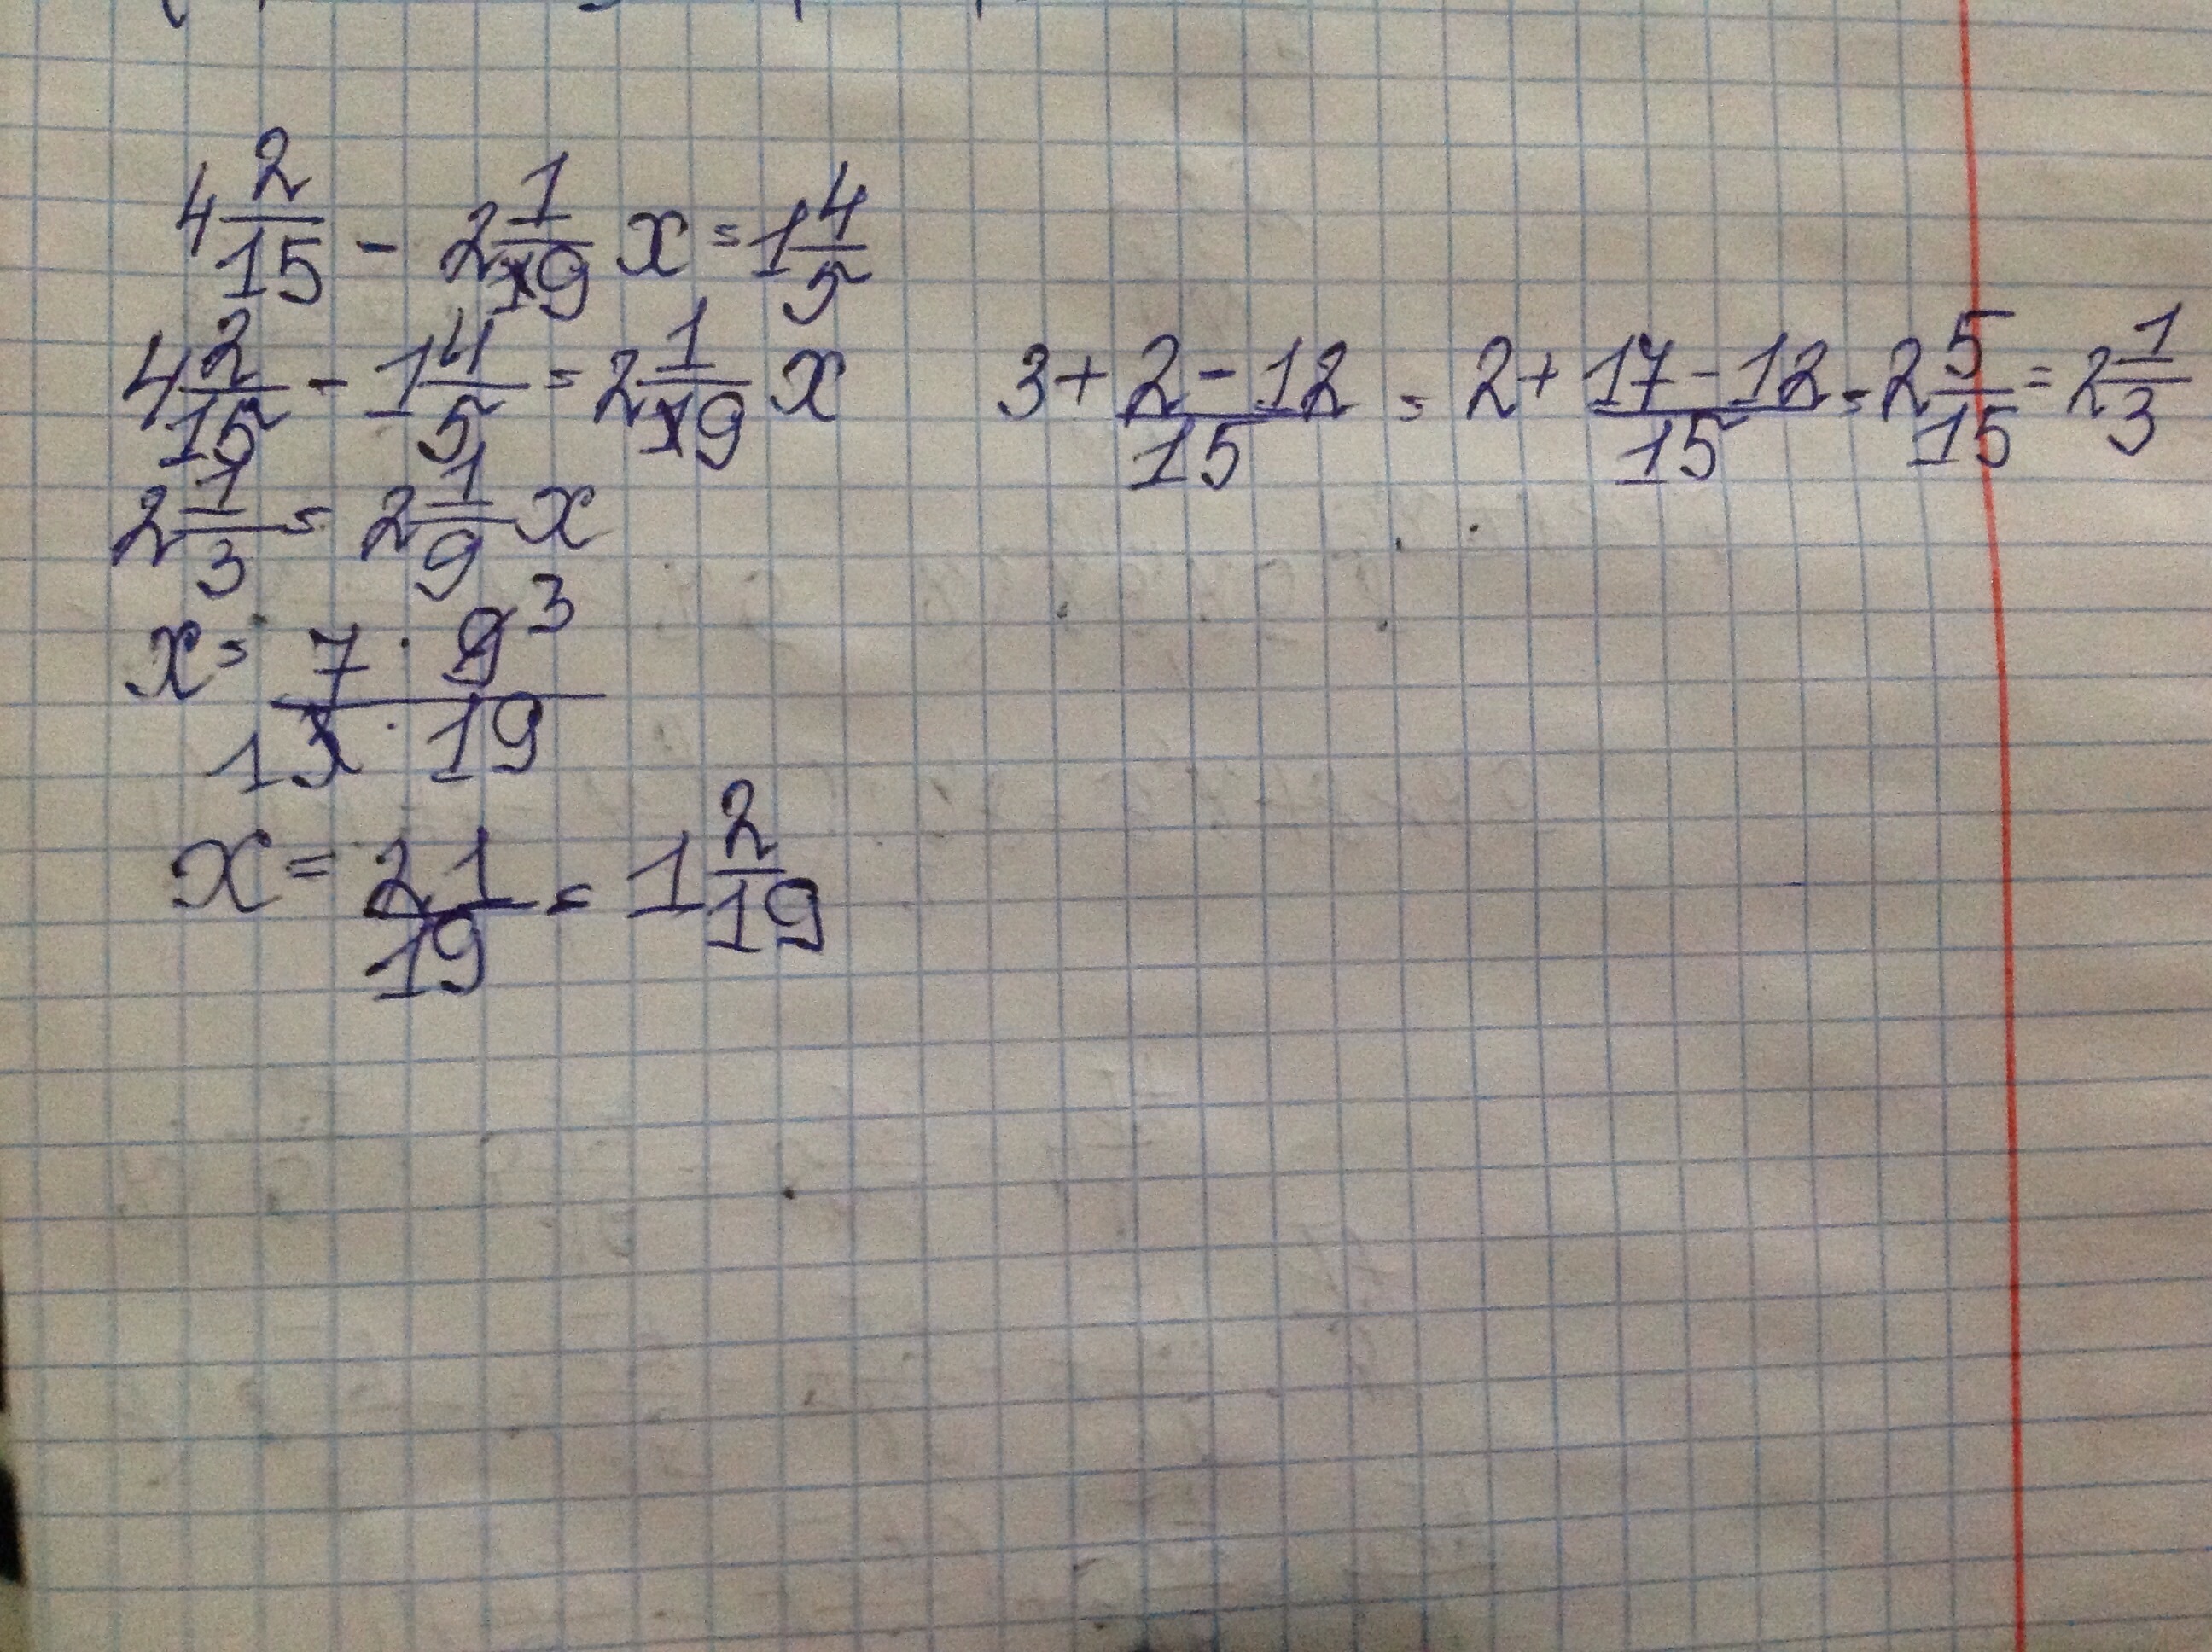 4 2/15 - 2 1/9 x = 1 4/5
4 2/15 - 1 4/5 = 2 1/9 x
3 + (2 - 12)/15 = 2 + (17 - 12)/15 = 2 5/15 = 2 1/3
2 1/3 = 2 1/9 x
x = (7 · 9 3)/(1 3 · 19)
x = 21/19 = 1 2/19